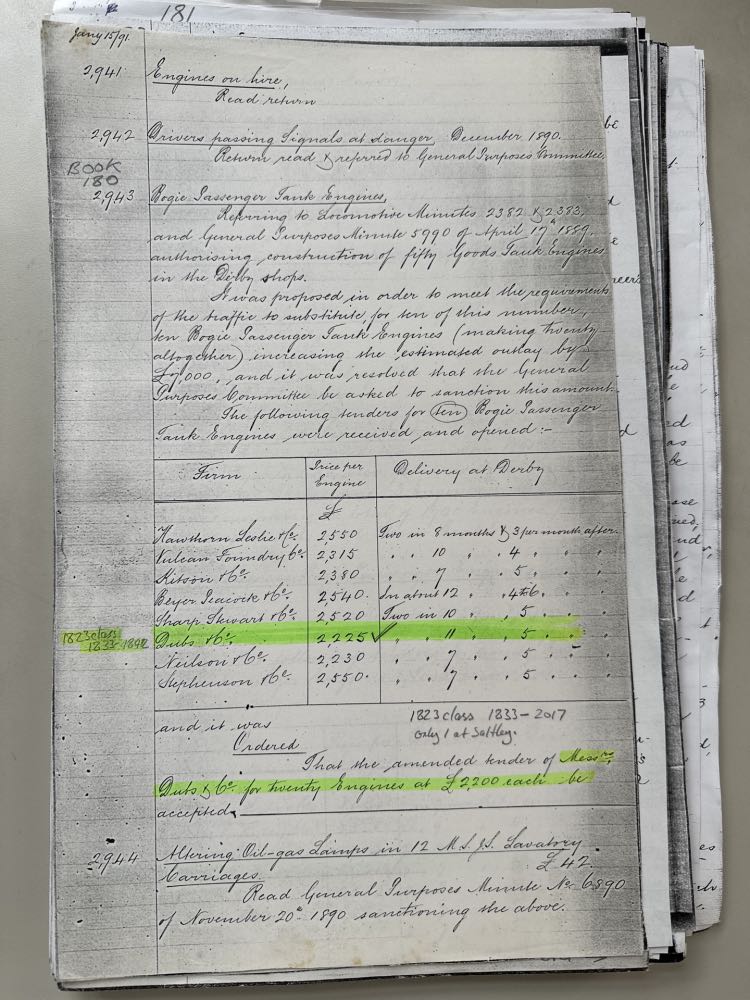 181
Jany 15/91
2,941 Engines on hire,
Read return
2,942 Drivers passing Signals at danger, December 1890.
Return read & referred to General Purposes Committee.
BOOK
180
2,943 Bogie Passenger Tank Engines,
Referring to Locomotive Minutes 2382 & 2383,
and General Purposes Minute 5990 of April 17th 1889,
authorising construction of fifty Goods Tank Engines
in the Derby shops.
It was proposed in order to meet the requirements
of the traffic to substitute, for ten of this number,
ten Bogie Passenger Tank Engines (making twenty
altogether), increasing the estimated outlay by
£7,000, and it was resolved that the General
Purposes Committee be asked to sanction this amount.
The following tenders for ten Bogie Passenger
Tank Engines were received and opened:-
Firm Price per Engine Delivery at Derby
£
Hawthorn Leslie & Co. 2,550 Two in 8 months & 3 per month after
Vulcan Foundry Co. 2,315 " " 10 " " 4 " " "
Kitson & Co. 2,380 " " 7 " " 5 " " "
Beyer Peacock & Co. 2,540. In about 12 " " 4 to 6 " " "
Sharp Stewart & Co. 2,520 Two in 10 " " 5 " " "
1823 class
1833-1842 Dubs & Co. 2,225 ✓ " " 11 " " 5 " " "
Neilson & Co. 2,230 " " 7 " " 5 " " "
Stephenson & Co. 2,550. " " 7 " " 5 " " "
1823 class 1833-2017
only 1 at Saltley.
and it was
Ordered
That the amended tender of Messrs.
Dubs & Co. for twenty Engines at £2,200 each be
accepted.
2,944 Altering Oil-gas Lamps in 12 M.S.J.S. Lavatory
Carriages. £42.
Read General Purposes Minute No. 6890
of November 20th 1890 sanctioning the above.